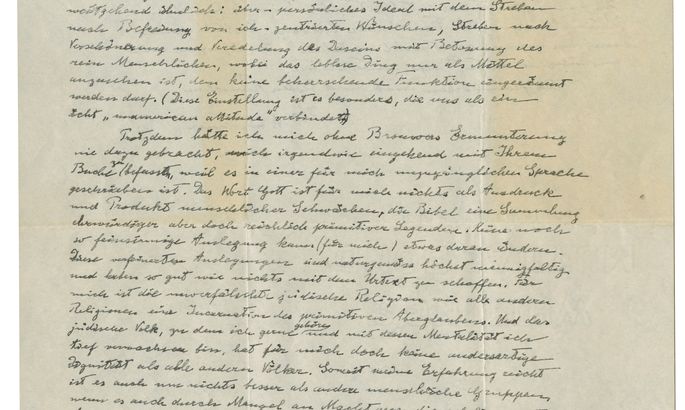 weitgehend ähnlich: über-persönliches Ideal mit dem Streben
nach Befreiung von ich-zentrierten Wünschen, Streben nach
Verschönerung und Veredelung des Daseins mit Betonung des
rein Menschlichen, wobei das leblose Ding nur als Mittel
anzusehen ist, dem keine beherrschende Funktion eingeräumt
werden darf. (Diese Einstellung ist es besonders, die uns als ein
echt „unamerican attitude“ verbindet)
Trotzdem hätte ich mich ohne Brouwers Ermunterung
nie dazu gebracht, mich irgendwie eingehend mit Ihrem
Buche zu befassen, weil es in einer für mich unzugänglichen Sprache
geschrieben ist. Das Wort Gott ist für mich nichts als Ausdruck
und Produkt menschlicher Schwächen, die Bibel eine Sammlung
ehrwürdiger aber doch reichlich primitiver Legenden. Keine noch
so feinsinnige Auslegung kann (für mich) etwas daran ändern.
Diese verfeinerten Auslegungen sind naturgemäss höchst mannigfaltig
und haben so gut wie nichts mit dem Urtext zu schaffen. Für
mich ist die unverfälschte jüdische Religion wie alle anderen
Religionen eine Incarnation des primitiven Aberglaubens. Und das
jüdische Volk, zu dem ich gerne gehöre und mit dessen Mentalität ich
tief verwachsen bin, hat für mich doch keine andersartige
Dignität als alle anderen Völker. Soweit meine Erfahrung reicht
ist es auch um nichts besser als andere menschliche Gruppen,
wenn es auch durch Mangel an Macht